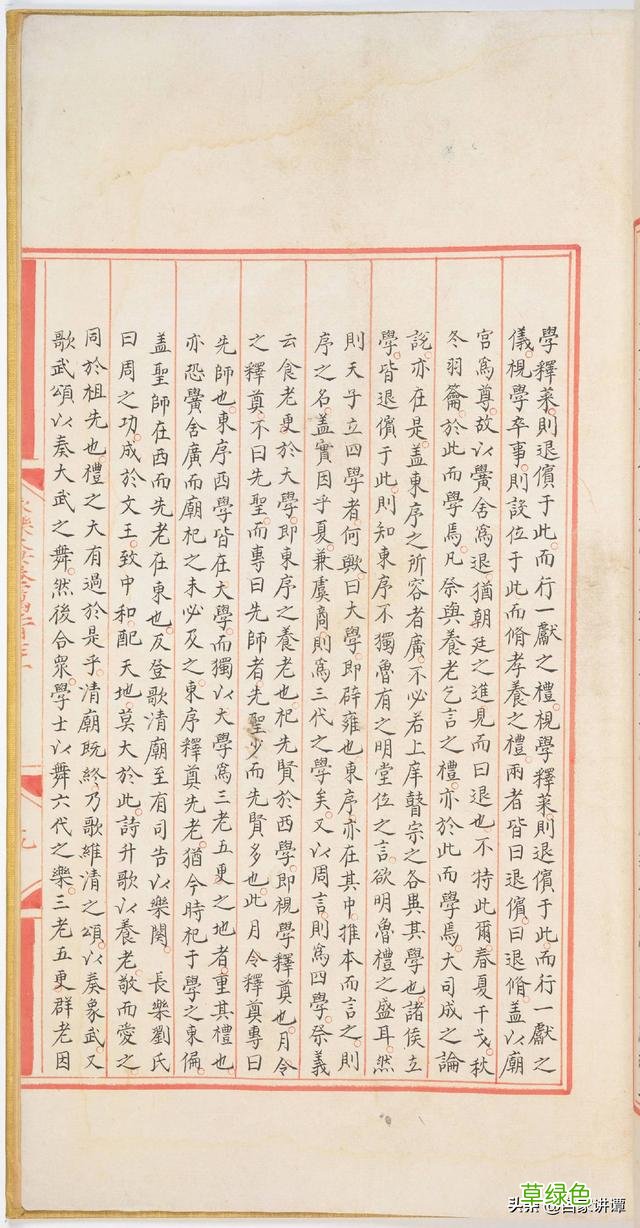 學釋菜則退儐于此而行一獻之禮視學釋菜則退儐于此而行一獻之
儀視學卒事則設位于此而脩孝養之禮兩者皆曰退儐曰退脩蓋以廟
宮爲尊故以黌舍爲退猶朝廷之進見而曰退也不特此爾春夏干戈秋
冬羽籥於此而學焉凡祭與養老乞言之禮亦於此而學焉大司成之論
說亦在是蓋東序之所容者廣不必若上庠瞽宗之各異其學也諸侯立
學皆退儐于此則知東序不獨魯有之明堂位之言欲明魯禮之盛耳然
則天子立四學者何歟曰大學即辟雍也東序亦在其中推本而言之則
序之名蓋實因乎夏兼虞商則爲三代之學矣又以周言則爲四學祭義
云食老更於大學即東序之養老也祀先賢於西學即視學釋奠也月令
之釋奠不曰先聖而專曰先師者先聖少而先賢多也此月令釋奠專曰
先師也東序西學皆在大學而獨以大學爲三老五更之地者重其禮也
亦恐黌舍廣而廟祀之未必及之東序釋奠先老猶今時祀于學之東偏
蓋聖師在西而先老在東也及登歌清廟至有司告以樂闋 長樂劉氏
曰周之功成於文王致中和配天地莫大於此詩升歌以養老敬而愛之
同於祖先也禮之大有過於是乎清廟既終乃歌維清之頌以奏象武又
歌武頌以奏大武之舞然後合衆學士以舞六代之樂三老五更群老因
草绿色
头条 @百家讲谭